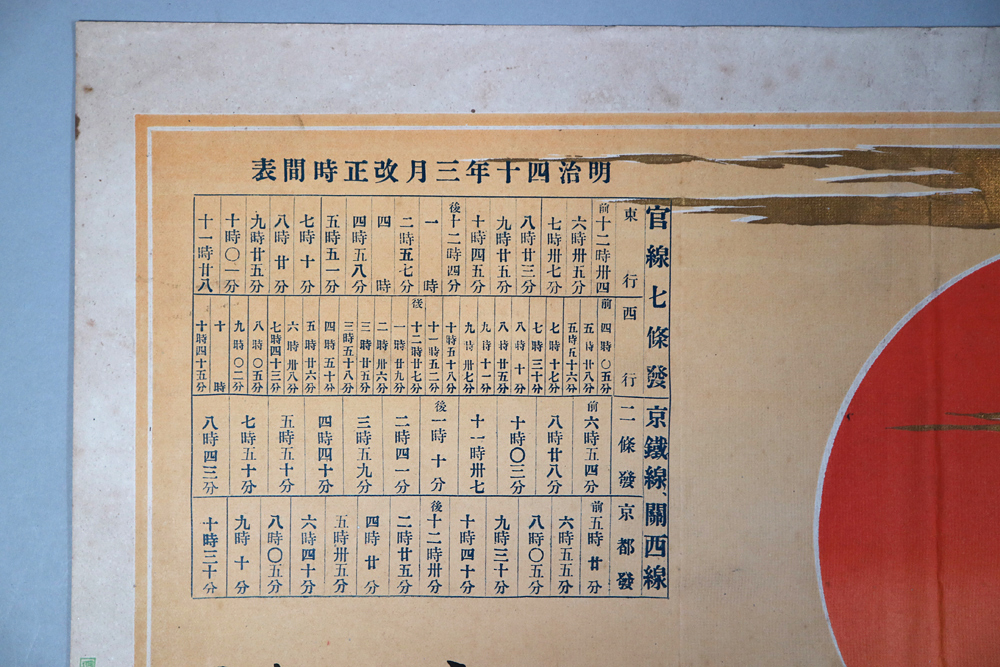 明治四十年三月改正時間表
官線七條發
東行
前十二時卅四
六時卅五分
七時卅七分
八時廿三分
九時廿五分
十時四五分
後十二時四分
一時
二時五七分
四時
四時五八分
五時五一分
七時十分
八時廿分
九時廿五分
十時〇一分
十一時廿八
西行
前四時〇五分
五時廿八分
五時五十六分
七時十七分
七時三十分
八時十分
八時廿五分
九時十一分
九時卅七分
十時五十八分
十一時五二分
後十二時廿七分
一時廿九分
二時卅六分
三時廿五分
三時五十八分
四時五十分
五時廿六分
六時卅八分
七時四十三分
八時〇五分
九時〇二分
十時
十時四十五分
京鐵線、關西線
二條發
前六時五四分
八時廿八分
十時〇三分
十一時卅七
後一時十分
二時四一分
三時五九分
四時四十分
五時五十分
七時五十分
八時四三分
京都發
前五時廿分
六時五五分
八時〇五分
九時三十分
十時四十分
後十二時卅分
二時廿五分
四時廿分
五時卅五分
六時四十分
八時〇五分
九時十分
十時三十分